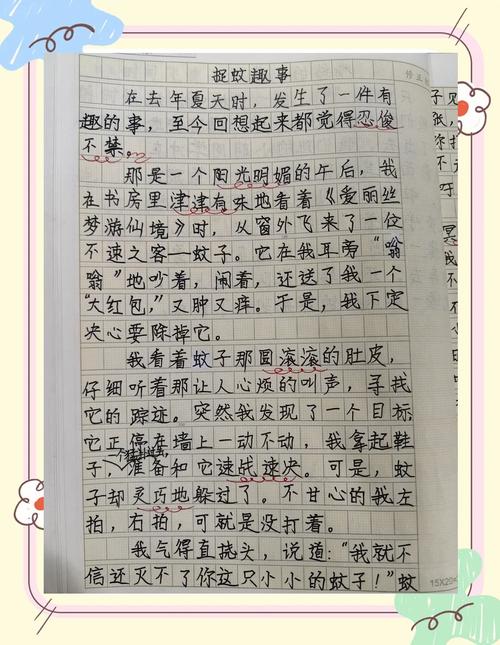 捉蚊趣事
在去年夏天时，发生了一件有
趣的事，至今回想起来都觉得忍俊
不禁。
那是一个阳光明媚的午后，我
在书房里津津有味地看着《爱丽丝
梦游仙境》时，从窗外飞来了一位
不速之客—蚊子。它在我耳旁“嗡
嗡”地吵着，闹着，还送了我一个
“大红包，”又肿又痒。于是，我下定
决心要除掉它。
我看着蚊子那圆滚滚的肚皮，
仔细听着那让人心烦的叫声，寻找
它的踪迹。突然我发现了一个目标，
它正停在墙上一动不动，我拿起鞋
子，准备和它速战速决。可是，蚊
子却灵巧地躲过了。不甘心的我左
拍，右拍，可就是没打着。
我气得直挠头，说道：“我就不
信还灭不了你这只小小的蚊子！”蚊
15X20=